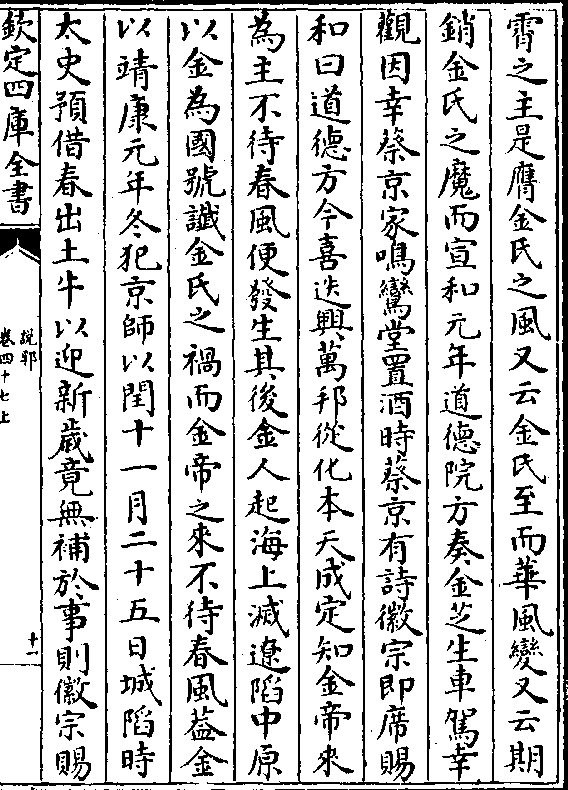 霄之主是膺金氏之風又云金氏至而華風變又云期
銷金氏之魔而宣和元年道德院方奏金芝生車駕幸
觀因幸蔡京家鳴鸞堂置酒時蔡京有詩徽宗即席賜
和曰道德方今喜迭興萬邦從化本天成定知金帝來
為主不待春風便發生其後金人起海上滅遼陷中原
以金為國號讖金氏之禍而金帝之來不待春風葢金
以靖康元年冬犯京師以閏十一月二十五日城陷時
太史預借春出土牛以迎新歲竟無補於事則徽宗賜
欽定四庫全書
說郛
卷四十七上
十一